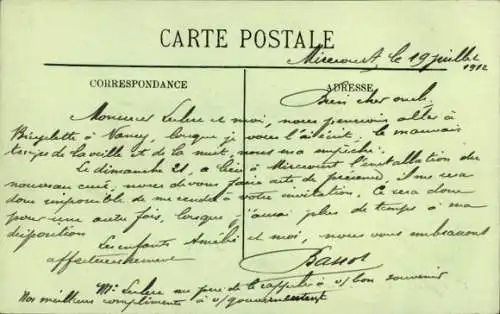 CARTE POSTALE
Mirecourt, le 19 juillet
1912
CORRESPONDANCE
ADRESSE
Bien cher oncle,
Monsieur Leclerc et moi, nous pensions aller à
Bicyclette à Nancy, lorsque je vous l'ai écrit. Le mauvais
temps de la veille et de la nuit, nous en a empêché.
Le dimanche 21, a lieu à Mirecourt l'installation du
nouveau curé, nous devons faire acte de présence. Il me sera
donc impossible de me rendre à votre invitation. Ce sera donc
pour une autre fois, lorsque j'aurai plus de temps à ma
disposition
Les enfants Amélie et moi, nous vous embrassons
affectueusement
Bassot
Mr Leclerc au père de le rappeler à v/bon souvenir
Nos meilleurs compliments à v/gouvernement